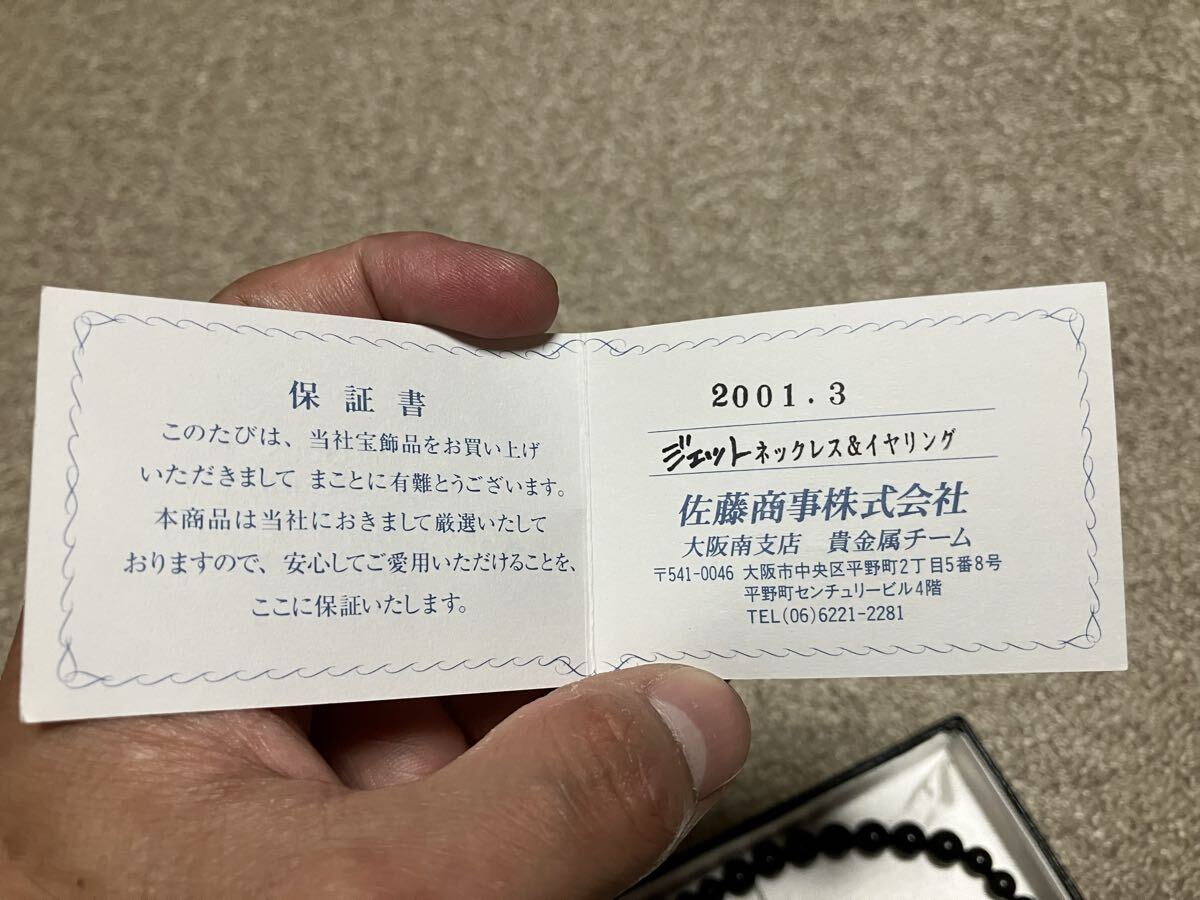 保証書
このたびは、当社宝飾品をお買い上げ
いただきまして まことに有難とうございます。
本商品は当社におきまして厳選いたして
おりますので、安心してご愛用いただけることを、
ここに保証いたします。
2001.3
ジェットネックレス&イヤリング
佐藤商事株式会社
大阪南支店 貴金属チーム
〒541-0046 大阪市中央区平野町2丁目5番8号
平野町センチュリービル4階
TEL(06)6221-2281